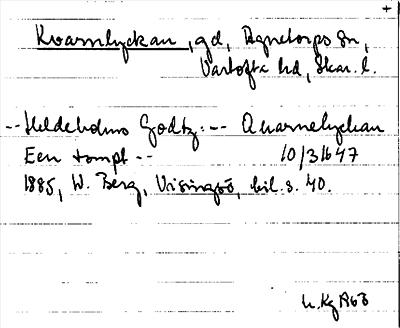 +
Kvarnlyckan, gd, Agnetorps sn,
Vartofta hd, Skar. l.
-- Hildeholms Godtz: -- Quarnelyckan
Een tompt -- 10/3 1647
1885, W. Berg, Visingsö, bil. s. 40.